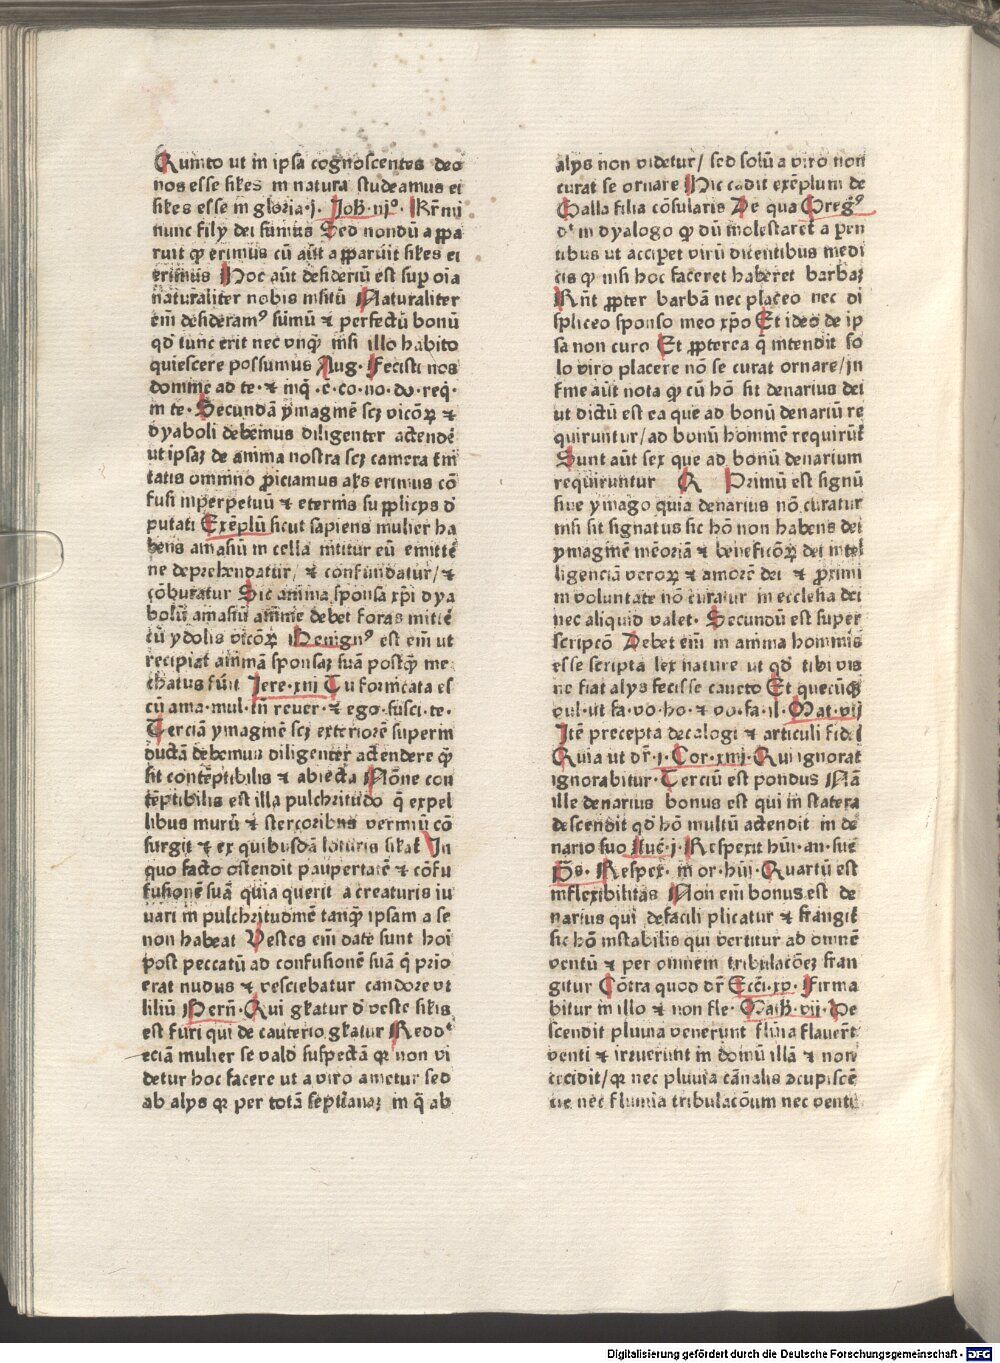 Quinto ut in ipsa cognoscentes deo
nos esse sił̄es in natura studeamus ei
sił̄es esse in gloria·j· Joh̄·iijº· Kr̄mi
nunc filij dei sumus Sed nondū appa
ruit qꝫ erimus cū aūt apparuit sił̄es ei
erimus Hoc aūt desideriū est suꝑ oīa
naturaliter nobis insitū Naturaliter
em̄ desideramꝰ sūmū ⁊ perfectū bonū
qd̄ tunc erit nec unqꝫ nisi illo habito
quiescere possumus Aug· Fecisti nos
domine ad te· ⁊ inq̄·ē·co·no·do·req̄·
in te· Secundā ymaginē scꝫ vicioꝝ ⁊
dyaboli debemus diligenter actendē
ut ipsaꝫ de anima nostra scꝫ camera t̄ni
tatis omnino ꝓiciamus al̄s erimus cō
fusi inperpetuū ⁊ eternis supplicijs d̄
putati Exēplū sicut sapiens mulier ha
bens amasiū in cella nititur eū emitte
ne deprehendatur/ ⁊ confundatur/ ⁊
cōburatur Sic anima sponsa xp̄i dya
bolū amasiū anime debet foras mittē
cū ydolis vicioꝝ Benignꝰ est em̄ ut
recipiat animā sponsaꝫ suā postqꝫ me
chatus fūit Jere·xiij Tu fornicata es
cū ama·mul·tn̄ reuer·⁊ ego·susci·te·
Terciā ymaginē scꝫ exteriorē superin
ductā debemus diligenter actendere qꝫ
sit contēptibilis ⁊ abiecta Nōne con
tēptibilis est illa pulchritudo q̄ expel
libus murū ⁊ stercoribus vermiū cō
surgit ⁊ ex quibusdā loturis sił̄at In
quo facto ostendit paupertatē ⁊ cōfu
fusionē suā quia querit a creaturis iu
uari in pulchritudinē tanqꝫ ipsam a se
non habeat Vestes em̄ date sunt hoī
post peccatū ad confusionē suā q̄ prio
erat nudus ⁊ vesciebatur candore vt
liliū Bern̄· Qui gl̄atur d̄ veste sił̄is
est furi qui de cauterio gl̄atur Reddꝰ
eciā mulier se vald̄ suspectā qꝛ non vi
detur hoc facere ut a viro ametur sed
ab alijs qꝛ per totā septianaꝫ in q̄ ab
alijs non videtur/ sed solū a viro non
curat se ornare Hic cadit exēplum de
Galla filia cōsularis De qua Gregꝰ
dꝰ in dyalogo qꝫ dū molestaret̄ a ꝑen
tibus ut acciꝑet virū dicentibus medi
cis qꝫ nisi hoc faceret haberet barbaꝫ
Rn̄t ꝓpter barbā nec placeo nec di
spliceo sponso meo xp̄o Et ideo de ip
sa non curo Et ꝓpterea q̄ intendit so
lo viro placere nō se curat ornare/ in
fine aūt nota qꝫ cū hō sit denarius dei
ut dictū est ea que ad bonū denariū re
quiruntur/ ad bonū hominē requirūt̄
Sunt aūt sex que ad bonū denarium
requiruntur R Primū est signū
siue ymago quia denarius nō curatur
nisi sit signatus sic hō non habens dei
ymaginē mēoriā ⁊ beneficioꝝ dei intel
ligenciā veroꝝ ⁊ amorē dei ⁊ ꝓximi
in voluntate nō curatur in ecclesia dei
nec aliquid valet· Secundū est super
scripcō Debet em̄ in anima hominis
esse scripta lex nature ut qd̄ tibi vis
ne fiat alijs fecisse caueto Et quecūqꝫ
vul·ut fa·vo·ho·⁊ vo·fa·il·Mat·vij
Itē precepta decalogi ⁊ articuli fidei
Quia ut dr̄·j·Cor·xiiij·Qui ignorat
ignorabitur·Terciū est pondus Nā
ille denarius bonus est qui in statera
descendit qd̄ hō multū actendit in de
nario suo Luc̄·j·Respexit hūi·an·sue
Ps̄·Respex·in or·hūi·Quartū est
inflexibilitas Non em̄ bonus est de
narius qui defacili plicatur ⁊ frangit̄
sic hō instabilis qui vertitur ad omnē
ventū ⁊ per omnem tribulacōeꝫ fran
gitur Cōtra quod dr̄ Eccī·xv·Firma
bitur in illo ⁊ non fle·Math̄·vij·De
scendit pluuia venerunt flūina flauer̄t
venti ⁊ irruerunt in domū illā ⁊ non
cecidit/ qꝛ nec pluuia carnalis ꝯcupiscē
tie nec flumina tribulacōum nec venti
Digitalisierung gefördert durch die Deutsche Forschungsgemeinschaft - DFG